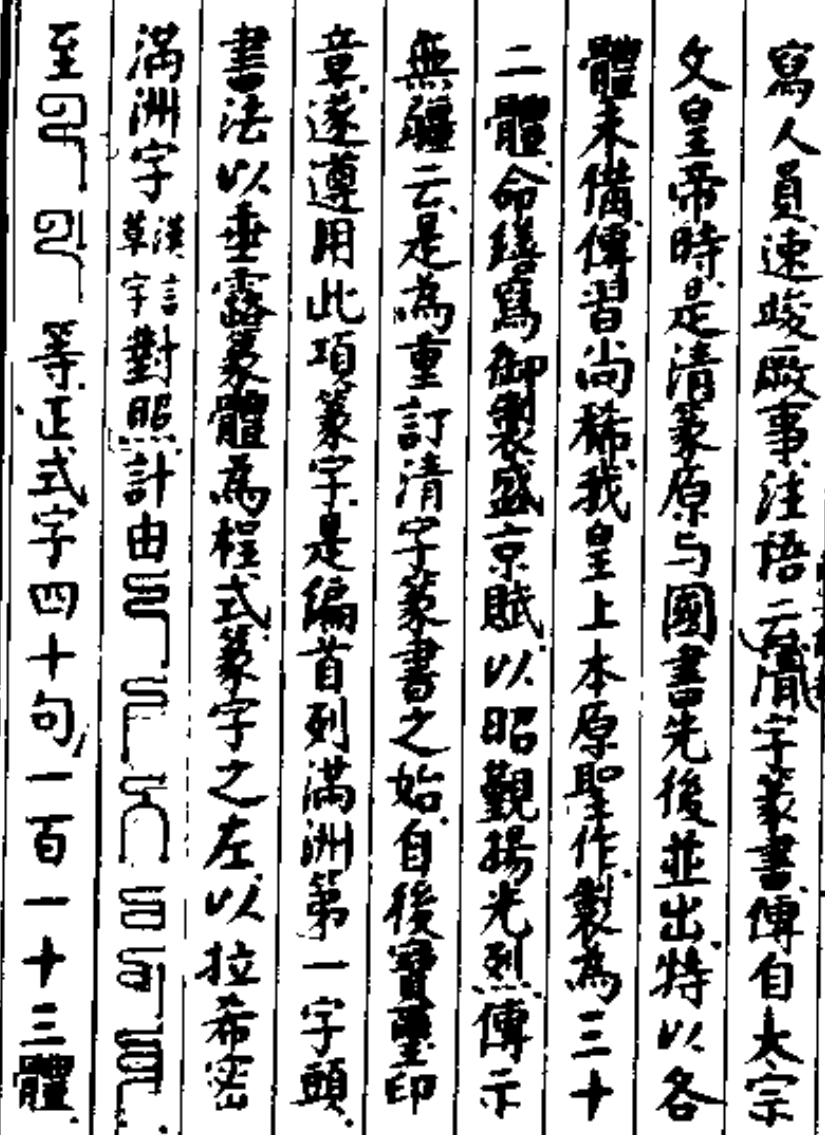 寫人員速竣厥事注語云清字篆書傳自太宗
文皇帝時是清篆原与國書先後並出特以各
體未備傳習尚稀我皇上本原聖作製為三十
二體命繕寫御製盛京賦以昭覲揚光烈傳示
無疆云是為重訂清字篆書之始自後寶璽印
章遂遵用此項篆字是編首列滿洲第一字頭
書法以垂露篆體為程式篆字之左以拉希密
滿洲字漢言草字對照計由
至 等正式字四十句一百一十三體